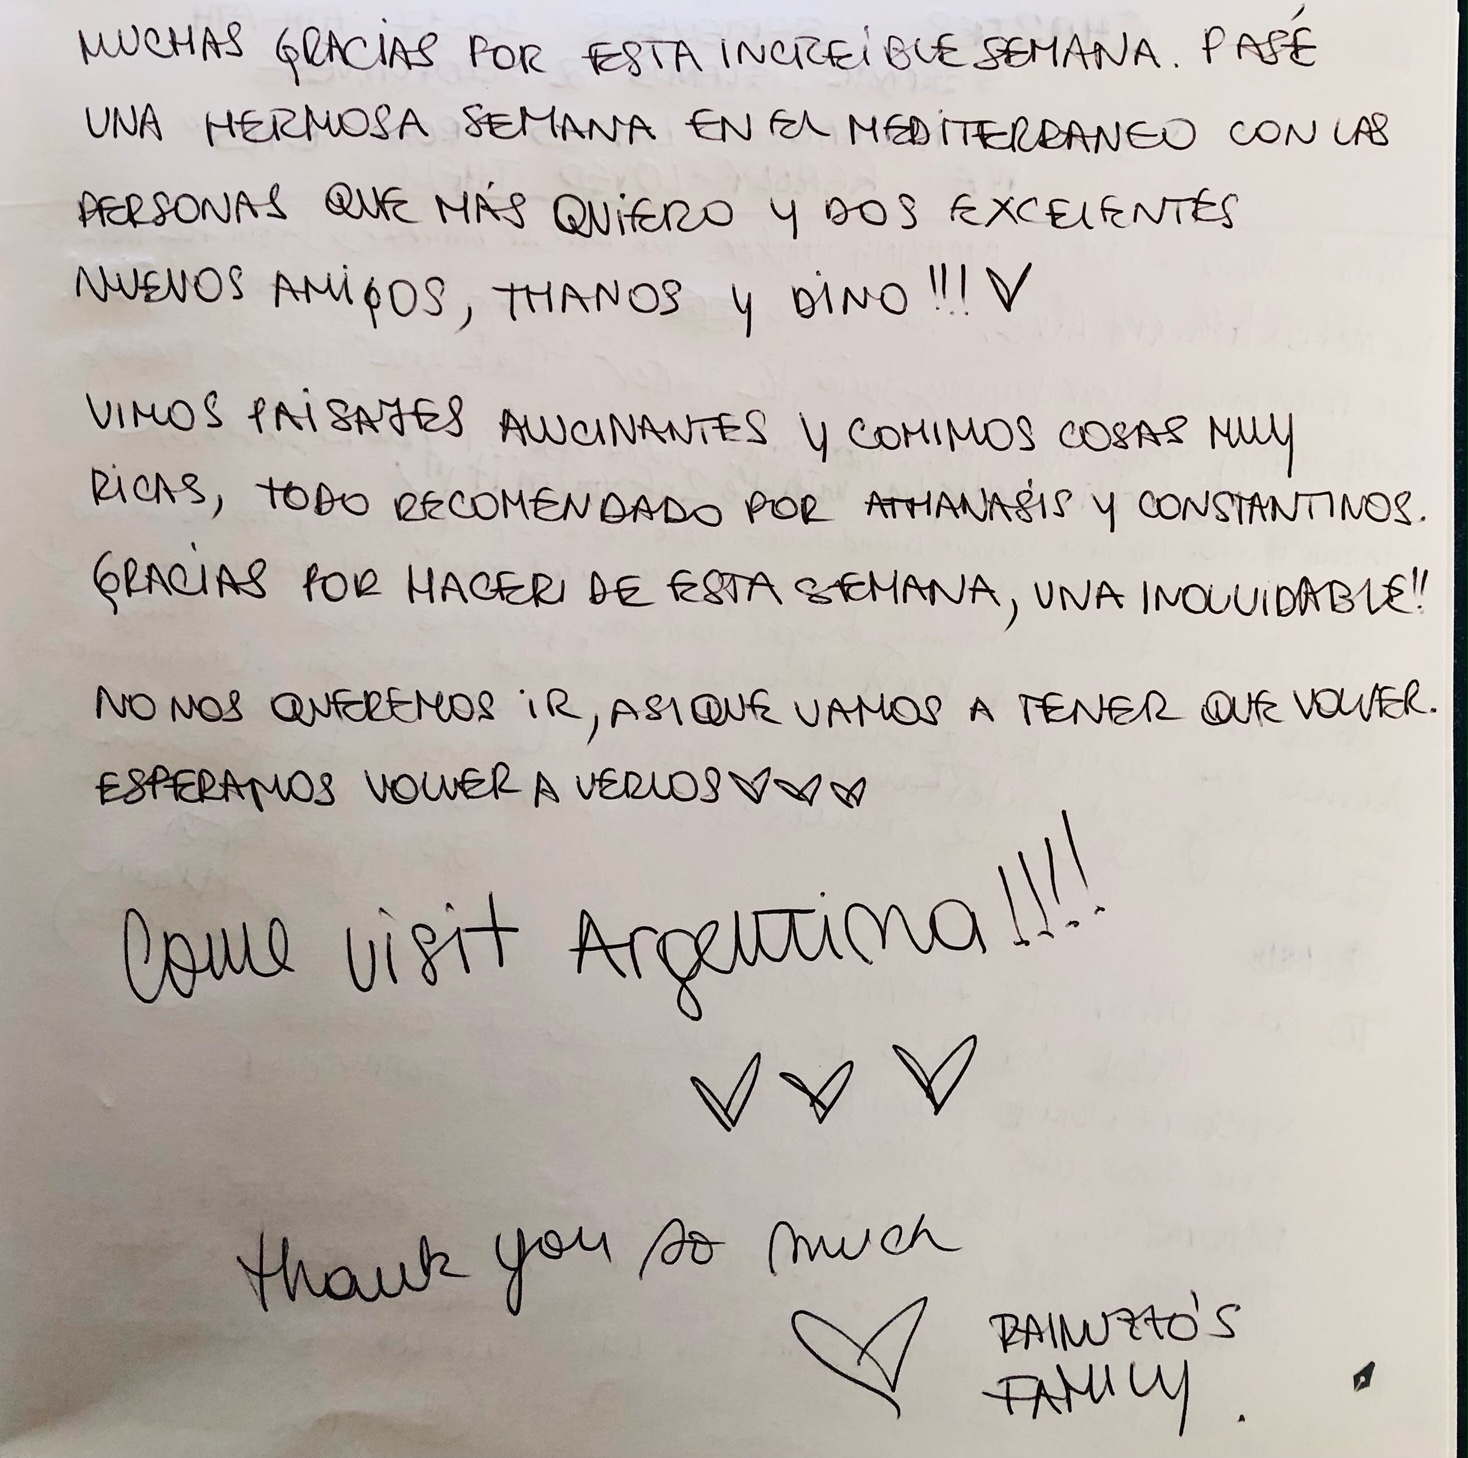 MUCHAS GRACIAS POR ESTA INCREÍBLE SEMANA. PASÉ
UNA HERMOSA SEMANA EN EL MEDITERRANEO CON LAS
PERSONAS QUE MÁS QUIERO Y DOS EXCELENTES
NUEVOS AMIGOS, THANOS Y DINO!!! ♡
VIMOS PAISAJES ALUCINANTES Y COMIMOS COSAS MUY
RICAS, TODO RECOMENDADO POR ATHANASIS Y CONSTANTINOS.
GRACIAS POR HACER DE ESTA SEMANA, UNA INOLVIDABLE!!
NO NOS QUEREMOS IR, ASI QUE VAMOS A TENER QUE VOLVER.
ESPERAMOS VOLVER A VERLOS ♡♡♡
Come visit Argentina!!!!
♡ ♡ ♡
thank you so much
♡
FAMILY.